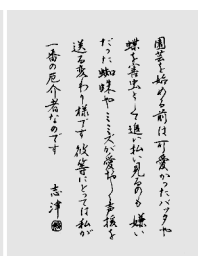 園芸を始める前は可愛かったバッタや
蝶を害虫として追い払い見るのも嫌い
だった蜘蛛やミミズが愛おしく声援を
送る変わり様です彼等にとっては私が
一番の厄介者なのです
志津